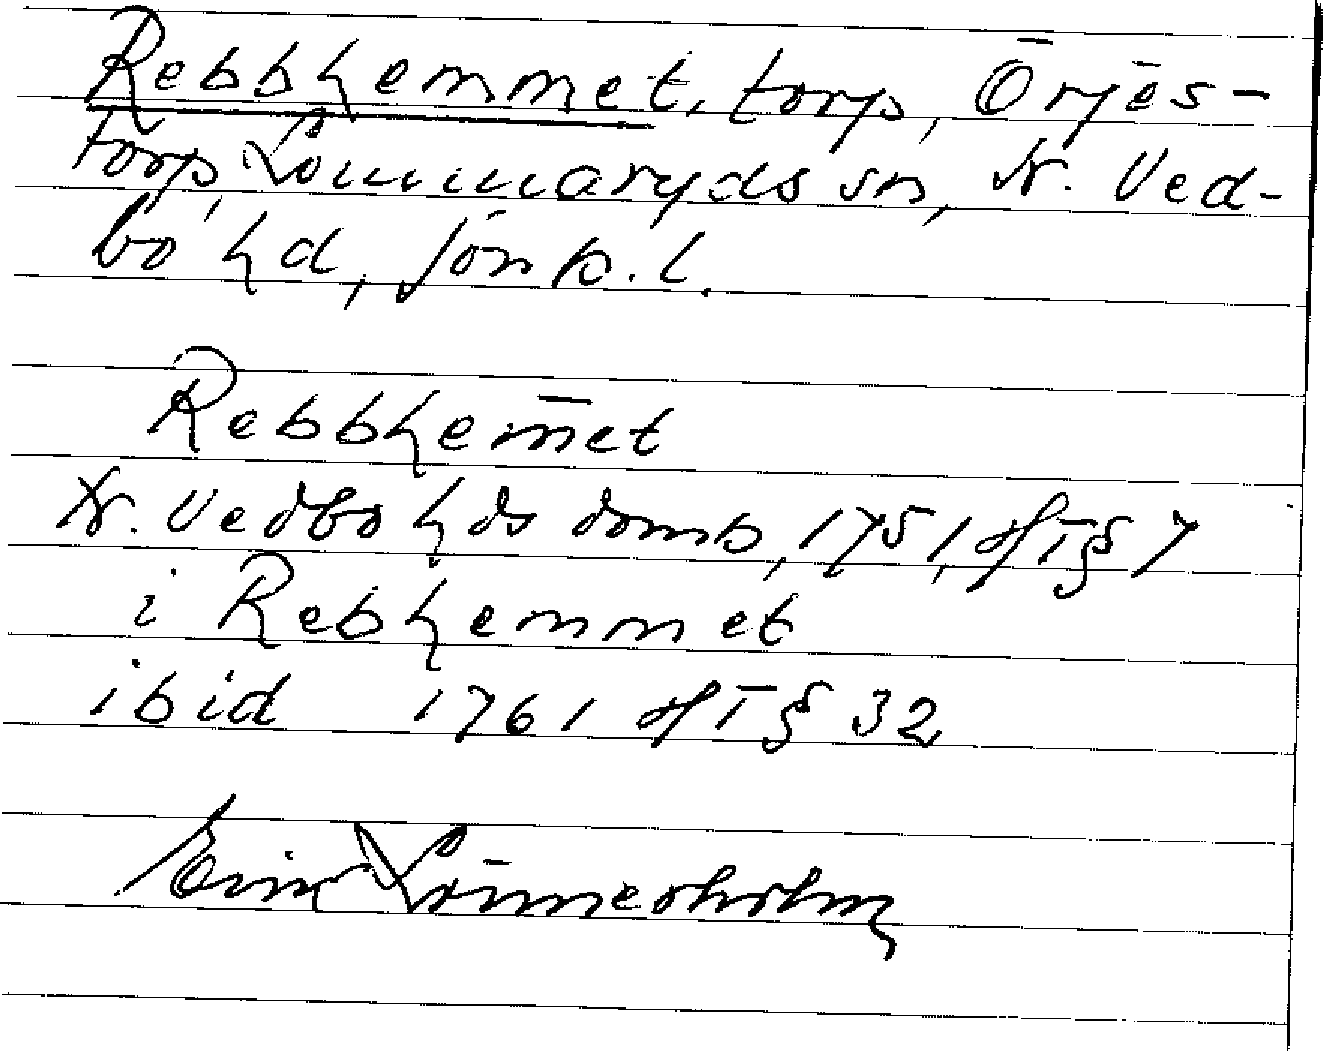 Rebbhemmet, torp, Örjes-
torp, Lommaryds sn, N. Ved-
bo hd, Jönk. l.
Rebbhem̄et
N. Vedbo hds domb, 1751, HT § 7
i Rebhemmet
ibid 1761 HT § 32
Einar Lönnerholm